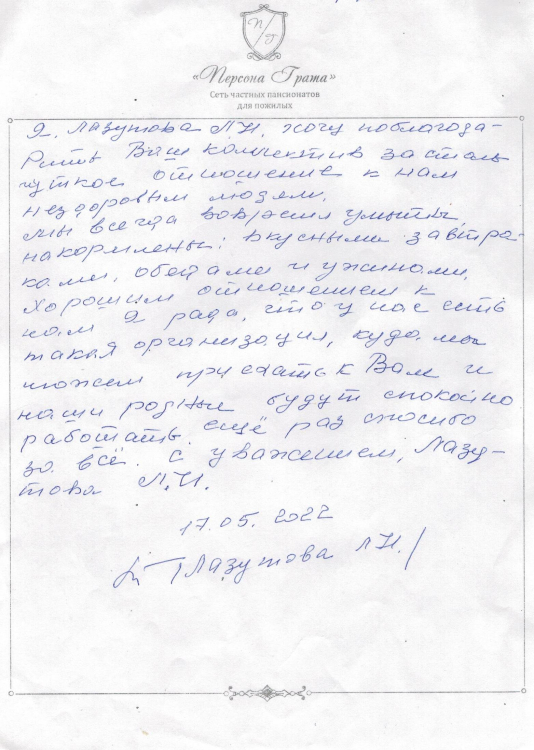 П Г
«Персона Грата»
Сеть частных пансионатов
для пожилых
Я, Лазутова Л.И. хочу поблагода-
рить Ваш коллектив за столь
чуткое отношение к нам
нездоровым людям.
Мы всегда вовремя умыты,
накормлены: вкусными завтра-
ками, обедами и ужинами.
Хорошим отношением к
нам Я рада, что у нас есть
такая организация, куда мы
можем приехать к Вам и
наши родные будут спокойно
работать. ещё раз спасибо
за всё. С уважением, Лазу-
това Л.И.
17.05.2022
/Лазутова Л.И./